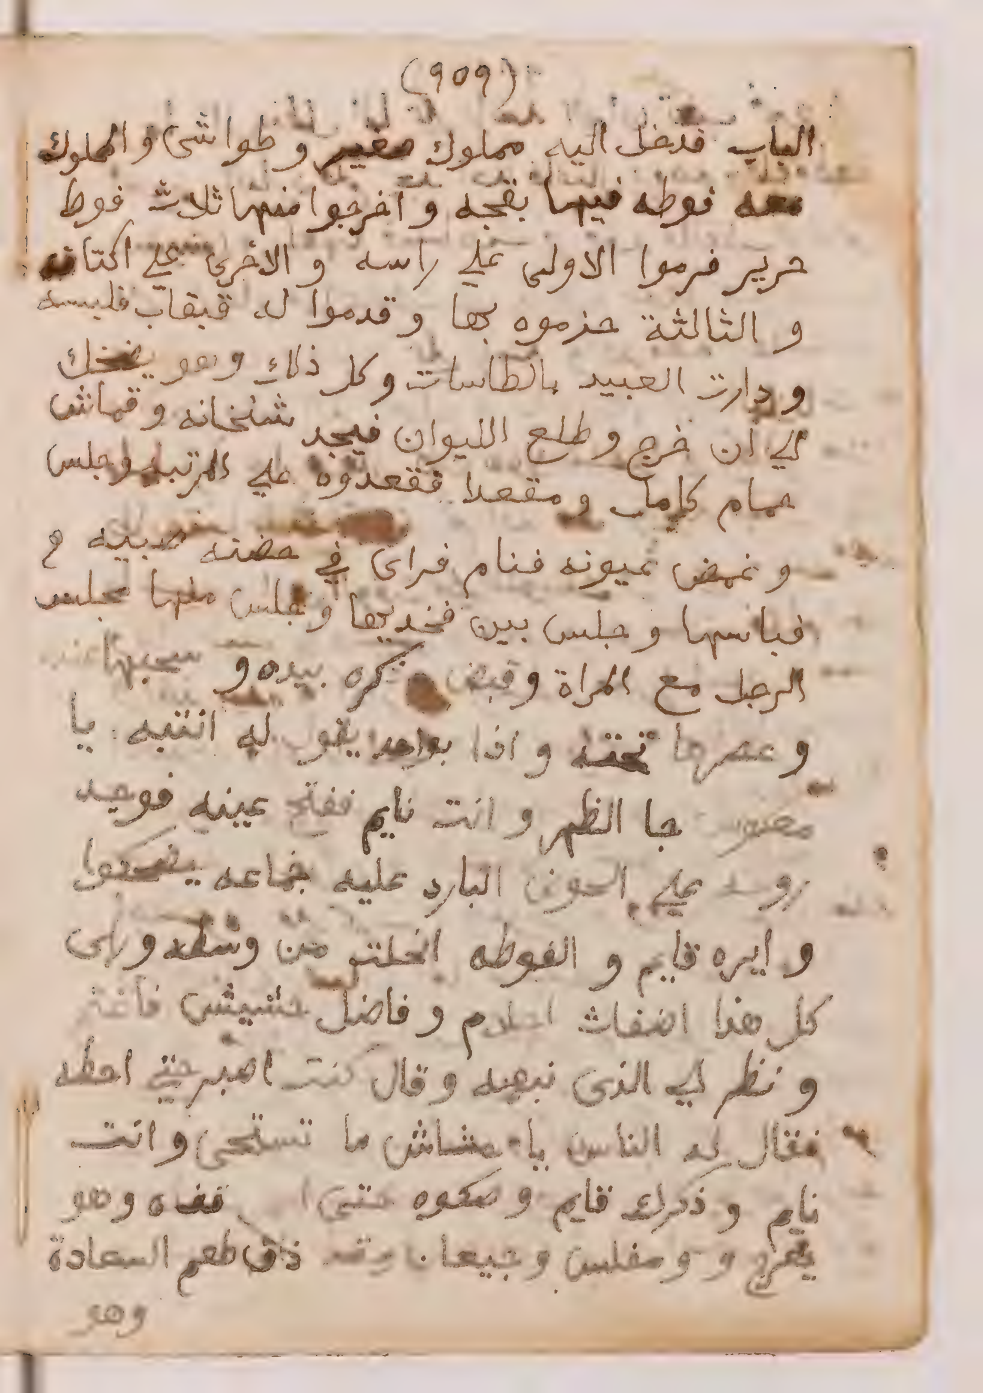 (٩٥٩)
الباب فدخل اليه مملوك صغير وطواشى والمملوك
معه فوطه فيها بقجه واخرجوا منها ثلاث فوط
حرير فرموا الاولى على راسه والاخرى على اكتافه
والثالثة حزموه بها وقدموا له قبقاب فلبسه
ودارت العبيد بالطاسات وكل ذلك وهو يضحك
الي ان خرج وطلع الليوان فيجد شلخانه وقماش
حمام كامل ومقعدا فقعدوه علي المرتبه وجلس
وغمض عيونه فنام فراى في حضنه صبيه
فباسها وجلس بين فخديها وجلس منها مجلس
الرجل مع المراة وقبض ذكره بيده وسحبها
وعصرها تحته واذا بواحد يقول له انتبه يا
جا الظهر وانت نايم ففتح عينه فوجد
روحه علي الحوض البارد عليه جماعه يضحكوا
وايره قايم والفوطه انحلت من وسطه وراى
كل هذا اضغاث احلام وفاضل حشيش فاغتم
ونظر الي الذى نبهه وقال كنت اصبر حتي احطه
فقال له الناس يا حشاش ما تستحى وانت
نايم وذكرك قايم وصكوه حتى قفاه وهو
ومفلس وجيعان وقد ذاق طعم السعادة
وهو